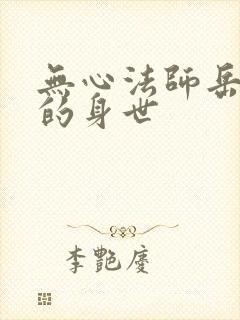 無心法師岳
的身世
李艷慶